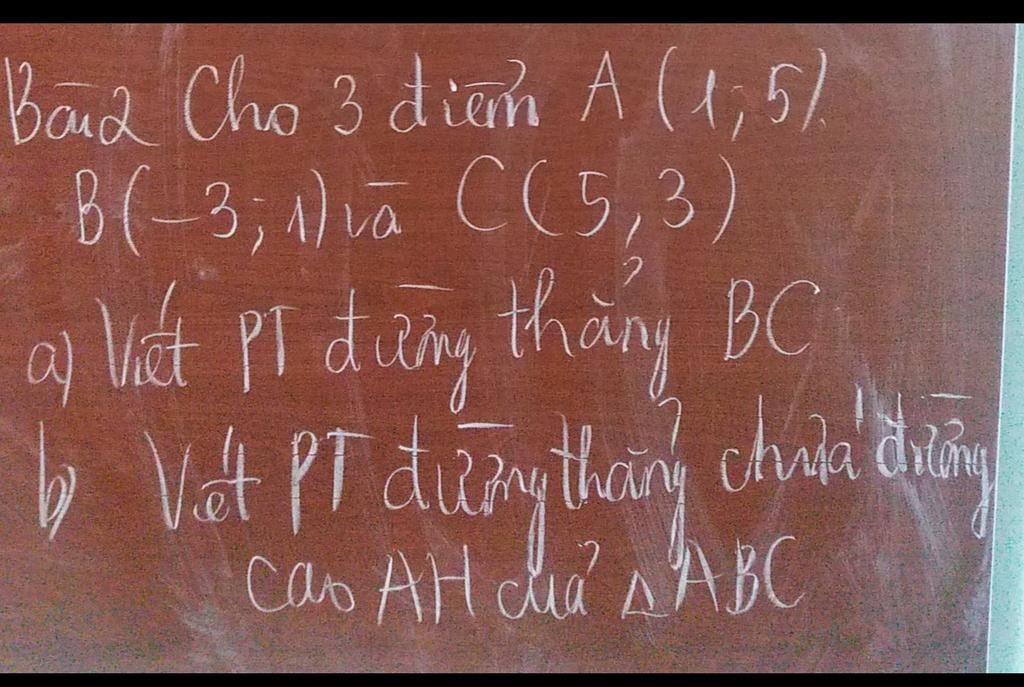 Bài 2 Cho 3 điểm A (1; 5).
B(-3; 1) và C(5, 3)
a) Viết PT đường thẳng BC
b) Viết PT đường thẳng chứa đường
cao AH của △ ABC